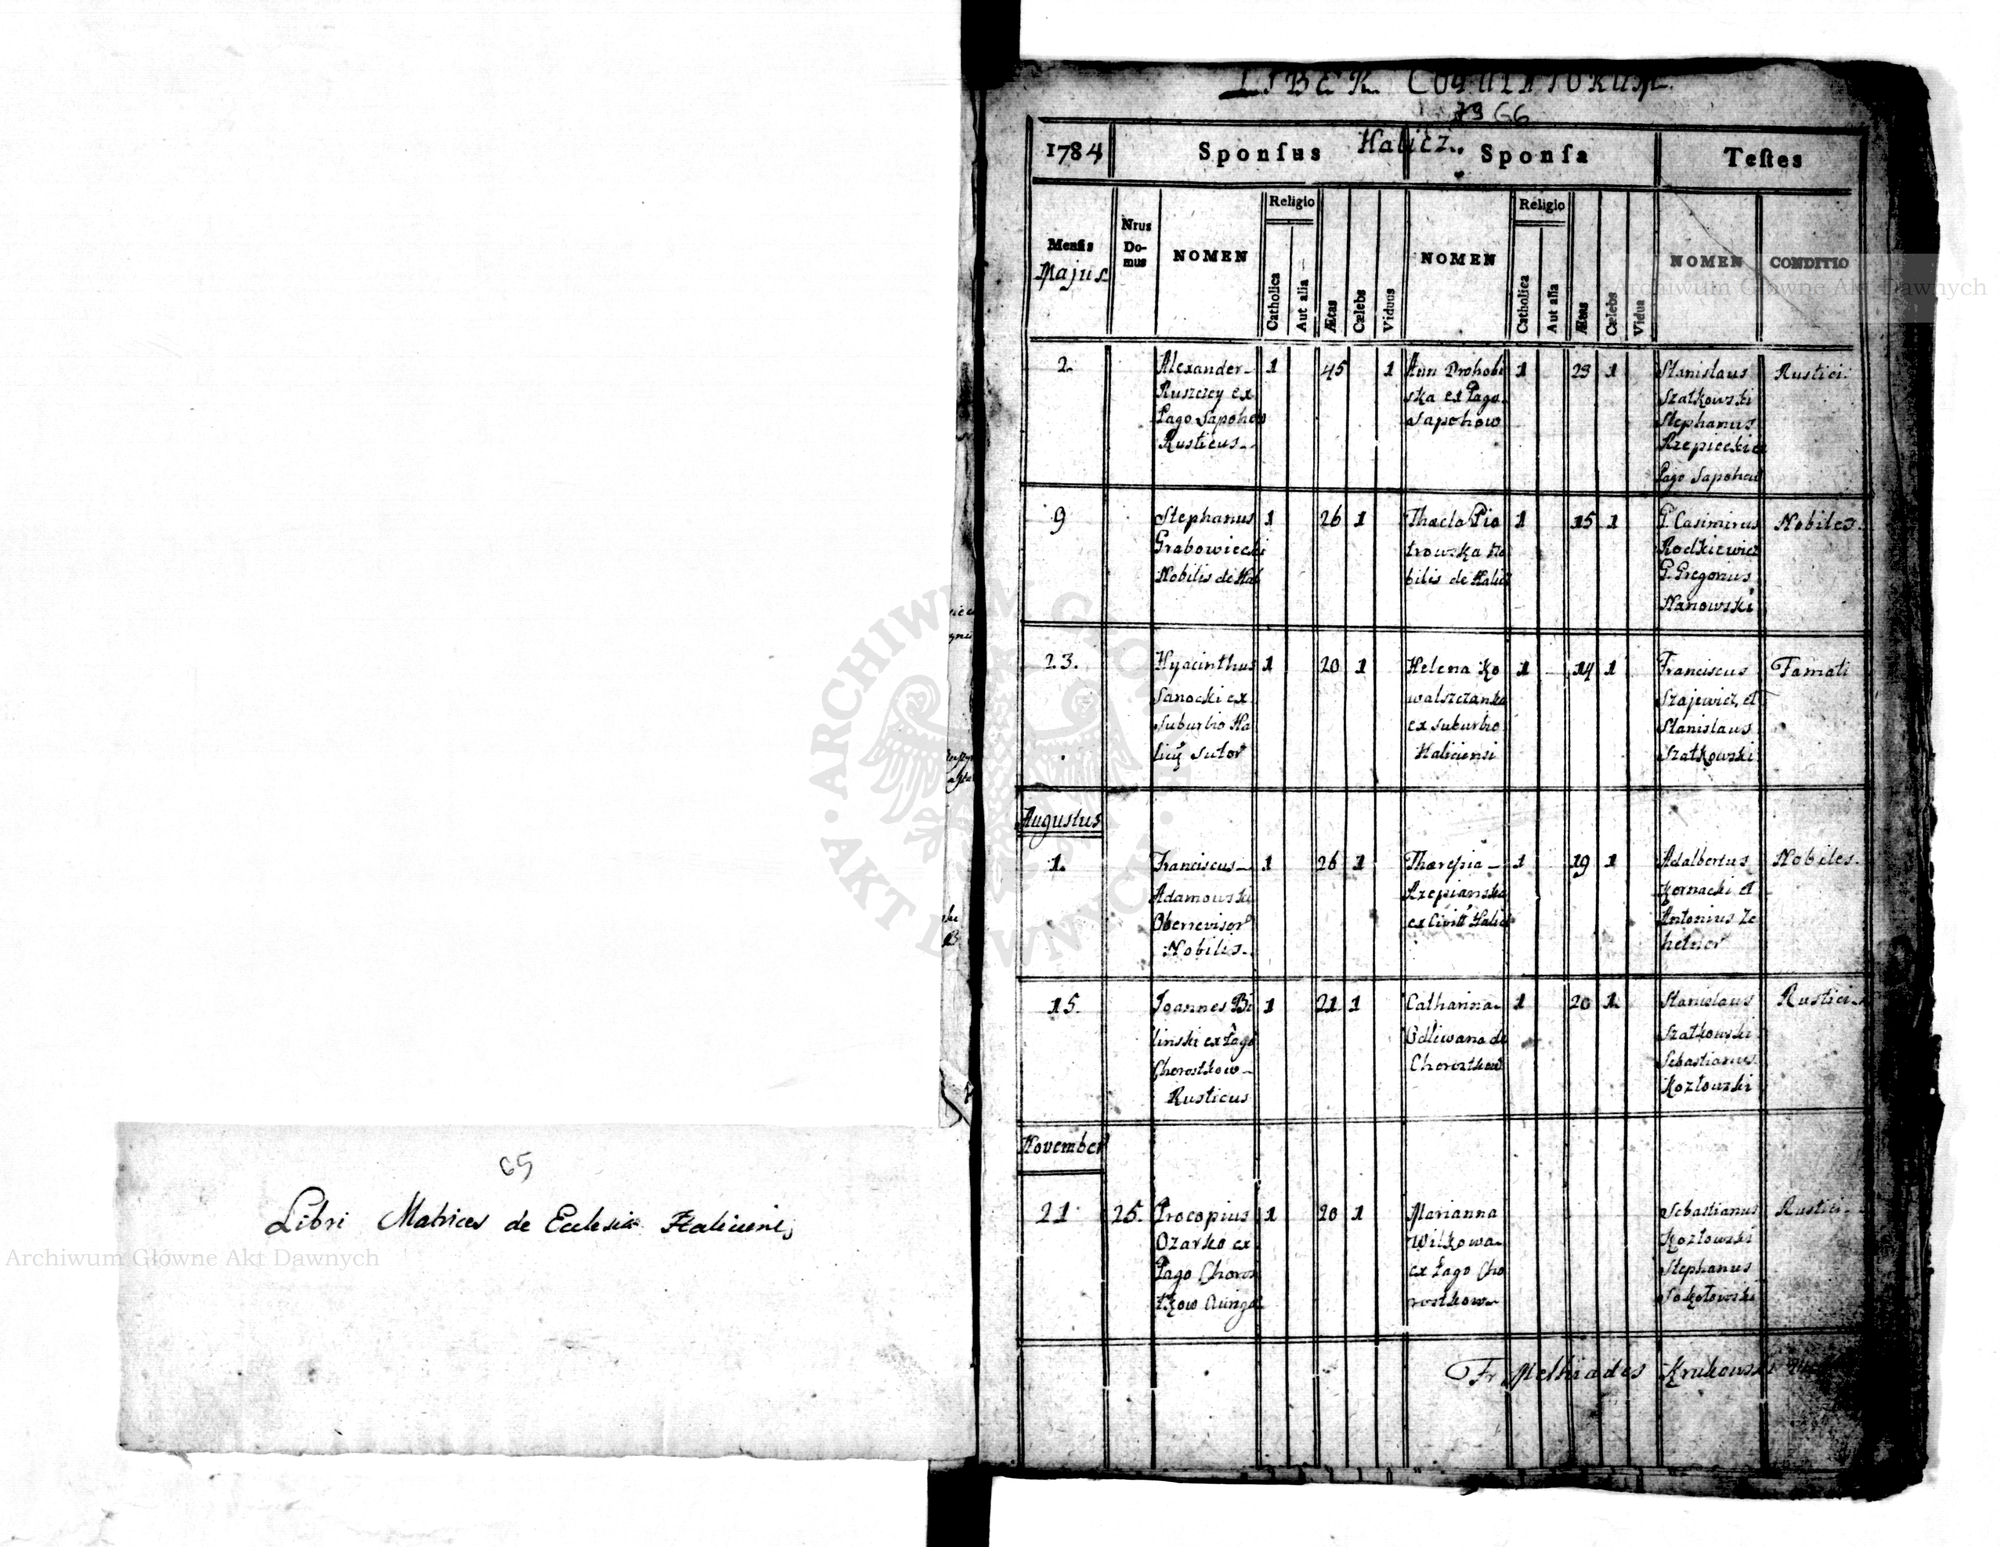 LIBER COPULATORUM
79 66
Halicz
1784 Sponſus Sponſa Teſtes
Menſis Majus
Nrus Do-mus
NOMEN
Religio
Catholica
Aut alia
Ætas
Cælebs
Viduus
NOMEN
Religio
Catholica
Aut alia
Ætas
Cælebs
Vidua
NOMEN
CONDITIO
2 Alexander 1 45 1 Ann Drohobi 1 23 1 Stanislaus Rustici
Ruszczy ex ska ex Pago Szatkowski
Pago Sapohow Sapohow Stephanus
Rusticus Rzepiecki ex
Pago Sapohow
9 Stephanus 1 26 1 Thæcla Pio 1 15 1 G. Casimirus Nobiles
Grabowiecki trowska No Rodkiewicz
Nobilis de Hal bilis de Halicz G. Gregorius
Nanowski
23. Hyacinthus 1 20 1 Helena Ko 1 14 1 Franciscus Famati
Sanocki ex walszczanka Szajewicz et
Suburbio Ha ex suburbio Stanislaus
licij Sutor Haliciensi Szatkowski
Augustus
1. Franciscus 1 26 1 Theresia 1 19 1 Adalbertus Nobiles.
Adamowski Rzepianska Kornacki et
Oberrevisor ex Civitt Halic Antonius Ze
Nobilis hetner
15. Joannes Bi 1 21 1 Catharina 1 20 1 Stanislaus Rustici
linski ex Pago Odliwana de Szatkowski
Chorostkow Chorostkow Sebastianus
Rusticus Kozlowski
November
21 25. Procopius 1 20 1 Marianna Sebastianus Rustici
Ozarko ex Wilkowa Kozłowski
Pago Choros ex Pago Cho Stephanus
tkow rostkow Sokołowski
Fr. Melhiades Krukowski
65
Libri Matrices de Ecclesia Haliciensi
Archiwum Główne Akt Dawnych
Archiwum Główne Akt Dawnych
ARCHIWUM GŁÓWNE AKT DAWNYCH